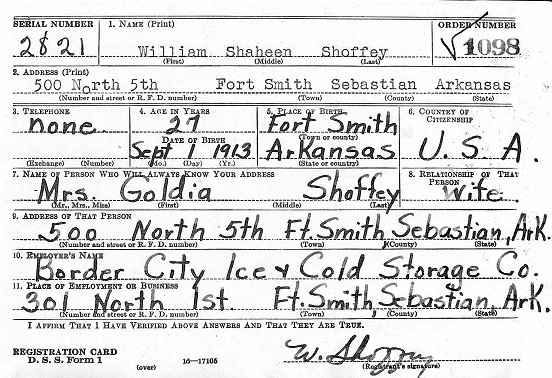 SERIAL NUMBER 1. NAME (Print) ORDER NUMBER
2821 William Shaheen Shoffey √ 1098
(First) (Middle) (Last)
2. ADDRESS (Print)
500 North 5th Fort Smith Sebastian Arkansas
(Number and street or R. F. D. number) (Town) (County) (State)
3. TELEPHONE 4. AGE IN YEARS 5. PLACE OF BIRTH 6. COUNTRY OF CITIZENSHIP
none 27 Fort Smith
DATE OF BIRTH (Town or county)
Sept 1 1913 Arkansas U.S.A.
(Exchange) (Number) (Mo.) (Day) (Yr.) (State or country)
7. NAME OF PERSON WHO WILL ALWAYS KNOW YOUR ADDRESS 8. RELATIONSHIP OF THAT PERSON
Mrs. Goldia Shoffey wife.
(Mr., Mrs., Miss) (First) (Middle) (Last)
9. ADDRESS OF THAT PERSON
500 North 5th Ft. Smith Sebastian, Ark.
(Number and street or R. F. D. number) (Town) (County) (State)
10. EMPLOYER'S NAME
Border City Ice & Cold Storage Co.
11. PLACE OF EMPLOYMENT OR BUSINESS
301 North 1st Ft. Smith Sebastian, Ark.
(Number and street or R. F. D. number) (Town) (County) (State)
I AFFIRM THAT I HAVE VERIFIED ABOVE ANSWERS AND THAT THEY ARE TRUE.
REGISTRATION CARD
D. S. S. Form 1 (over) 16—17105 W.
(Registrant's signature)